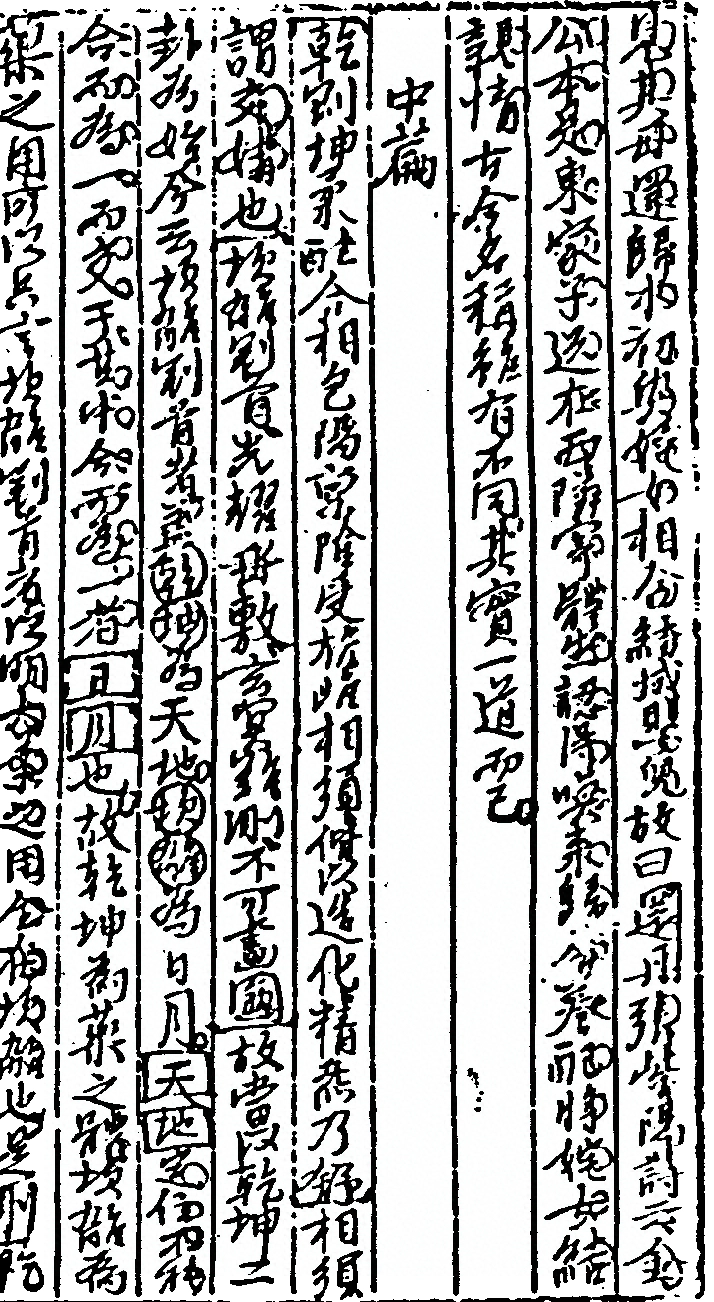 見其再還歸於初與姹女相合結故曰還丹張紫陽詩云金
公本是東家子送在西隣寄體生認得喚來歸舍養配將姹女結
親情古今名稱雖有不同其實一道而已
中篇
乾剛坤柔配合相包陽稟陰受雄雌相須偕以造化精炁乃舒相須
謂交媾也坎離冠首光耀垂敷玄冥難測不可畫圖故當以乾坤二
卦為始今云坎離冠首者蓋乾坤為天地坎離為日月天地定位
合而為一而交于其中合而為一者日月也故乾坤為藥之體坎離為
藥之用所以只言坎離冠首者以明藥之用全坎離也是則乾